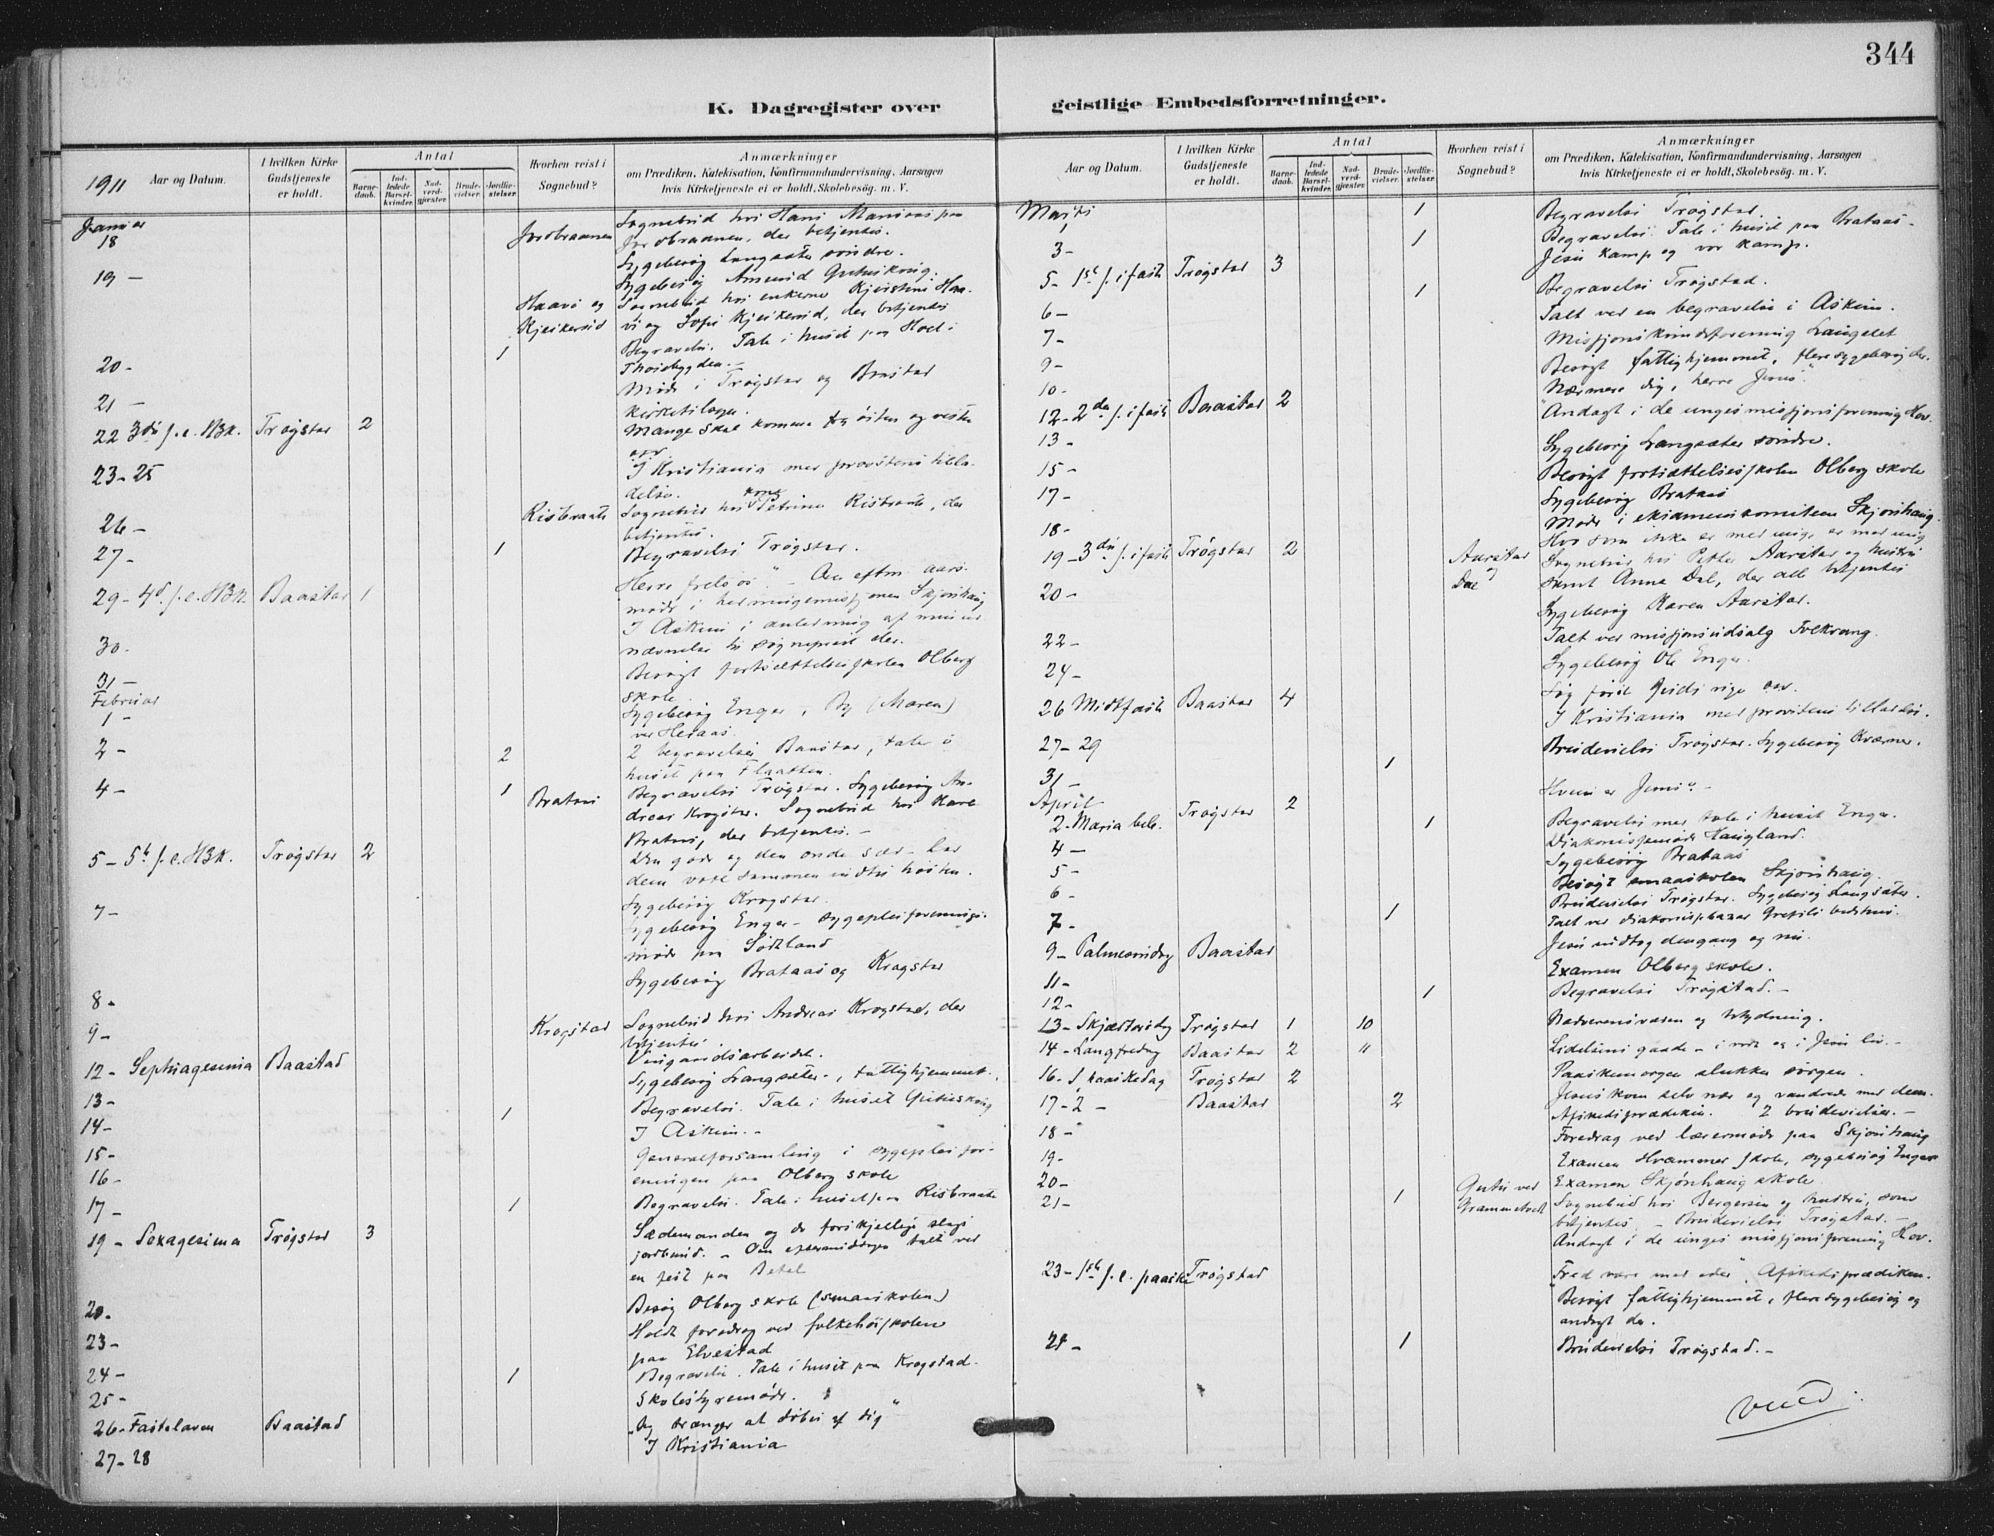 344
K. Dagregister over
geistlige Embedsforretninger.
1911 Aar og Datum.
I hvilken Kirke Gudstjeneste er holdt.
Antal
Barnedaab.
Indledede Barselkvinder.
Nadverdgjester
Brudevielser.
Jordfæstelser
Hvorhen reist i Sognebud?
Anmærkninger
om Prædiken, Katekisation, Konfirmandundervisning, Aarsagen
hvis Kirketjeneste ei er holdt, Skolebesög. m. V.
Januar
18 Sognebud hos Hans
der betjentes.
Sygebesøg Langsæter søndre.
19 —
Haavi og Sognebud hos enkerne Kjerstine Haa-
Kjeikerud vi og Sofie Kjeikerud, der betjentes
20 - 1 Begravelse. Tale i huset paa Hoel i
21 — Møde i Trøgstad og Baastad
kirketilsyn.
22 3die s. e. H3K. Trøgstad 2 Mange skal komme fra østen og vesten
23-25 I Kristiania med provstens tilla-
delse.
26 — Risbraate Sognebud hos Petrine Risbraate, der
betjentes.
27 - 1 Begravelse Trøgstad.
29 - 4d. s. e. H3K. Baastad 1 Herre frels os" - Om eftm. aars-
møde i Skjønhaug
30 - I Askim i anledning af min ud-
nævnelse til sogneprest der.
31 — Besøgt fortsættelsesskolen Olberg
skole.
Februar
1 - Sygebesøg Enger, By (Maren)
ved Heraas.
2 - 2 2 begravelser Baastad, tale i
huset paa Flaatten.
4 - 1 Brataas Begravelse Trøgstad. Sygebesøg An-
dreas Krogstad. Sognebud hos Kari
Brataas, der betjentes. -
5 - 5te s. e. H3K. Trøgstad 2 Den gode og den onde sæd - lad
dem vokse sammen indtil høsten.
7 - Sygebesøg Krogstad.
Sygebesøg Enger - sygepleiforenings-
møde paa
8 - Sygebesøg Brataas og Krogstad
9 - Krogstad Sognebud hos Andreas Krogstad, der
betjentes.
12 - Septuagesima Baastad Vingaardsarbeidet.
13 - Sygebesøg Langsæter, fattighjemmet.
14 - 1 Begravelse. Tale i huset
15 - I Askim. -
16 - Generalforsamling i sygepleifor-
eningen paa Olberg skole
17 - 1 Begravelse. Tale i huset paa Risbraate
19 - Sexagesima Trøgstad 3 Sædemanden og de forskjellige slags
jordbund. - Om eftermiddagen talt ved
en fest paa Betel
20 - Besøg Olberg skole (smaaskolen)
23 - Holdt foredrag ved folkehøiskolen
paa Elvestad
24 - 1 Begravelse. Tale i huset paa Krogstad.
25 - Skolestyremøde.
26 - Fastelaven Baastad "Jeg trænger at døbes af dig"
27 - 28 I Kristiania
Aar og Datum.
I hvilken Kirke Gudstjeneste er holdt.
Antal
Barnedaab.
Indledede Barselkvinder.
Nadverdgjester
Brudevielser.
Jordfæstelser
Hvorhen reist i Sognebud?
Anmærkninger
om Prædiken, Katekisation, Konfirmandundervisning, Aarsagen
hvis Kirketjeneste ei er holdt, Skolebesög. m. V.
Marts
1 1 Begravelse Trøgstad.
3 - 1 Begravelse. Tale i huset paa Brataas.
5 - 1st s. i faste Trøgstad 3 Jesu kamp og vor kamp.
6 — 1 Begravelse Trøgstad.
7 - Talt ved en begravelse i Askim.
9 - Misjonskvindeforening Langelet
10 - Besøgt fattighjemmet, flere sygebesøg der.
12 - 2den s. i faste Baastad 2 Nærmere dig, herre Jesus".
13 - Andagt i de unges misjonsforening Hov.
15 - Sygebesøg Langsæter søndre.
17 - Besøgt fortsættelsesskolen Olberg skole
Sygebesøg Brataas
18 - Møde i Skjønhaug.
19 - 3die s. i faste Trøgstad 2 Hvo som ikke er med mig er mod mig
20 - Aarstad og Dal Sognebud hos Petter Aarstad og hustru
samt Anna Dal, der alle betjentes
Sygebesøg Karen Aarstad.
22 - Talt ved misjonsudsalg Folkvang.
24 - Sygebesøg Ole Enger.
26 Midtfaste Baastad 4 Søg først Guds rige osv.
27 - 29 I Kristiania med provstens tilladelse.
31 - 1 Brudevielse Trøgstad. Sygebesøg Kværner.
April
2 - Maria beb. Trøgstad 2 Hvem er Jesus? -
1 Begravelse med tale i huset Enger.
4 — Diakonissemøde
5 - Sygebesøg Brataas
6 - Besøgt smaaskolen Skjønhaug.
7 - 1 Brudevielse Trøgstad. Sygebesøg Langsæter.
Talt ved
9 - Palmesøndag Baastad Jesu indtog dengang og nu.
11 - Examen Olberg skole.
12 - 1 Begravelse Trøgstad. -
13 - Skjærtorsdag Trøgstad 1 10 Nadverens væsen og betydning.
14 - Langfredag Baastad 2 " Lidelsens gaade - i vort og i Jesu liv. -
16 - 1 paaskedag Trøgstad 2 Paaskemorgen slukker sorgen.
17 - 2 - Baastad 2 Jesus kom selv nær og vandred med dem.
Afskedsprædiken. 2 brudevielser. -
18 - Foredrag ved lærermøde paa Skjønhaug
19 - Examen Hvammer skole, sygebesøg Enger
20 - Examen Skjønhaug skole.
21 - 1 ved Grammetvedt Sognebud hos Bergersen og hustru, som
betjentes. - Brudevielse Trøgstad. -
Andagt i de unges misjonsforening Hov.
23 - 1st s. e. paaske Trøgstad "Fred være med eder". Afskedsprædiken.
Besøgt fattighjemmet, flere sygebesøg og
andagt der.
1 Brudevielse Trøgstad. -
vend